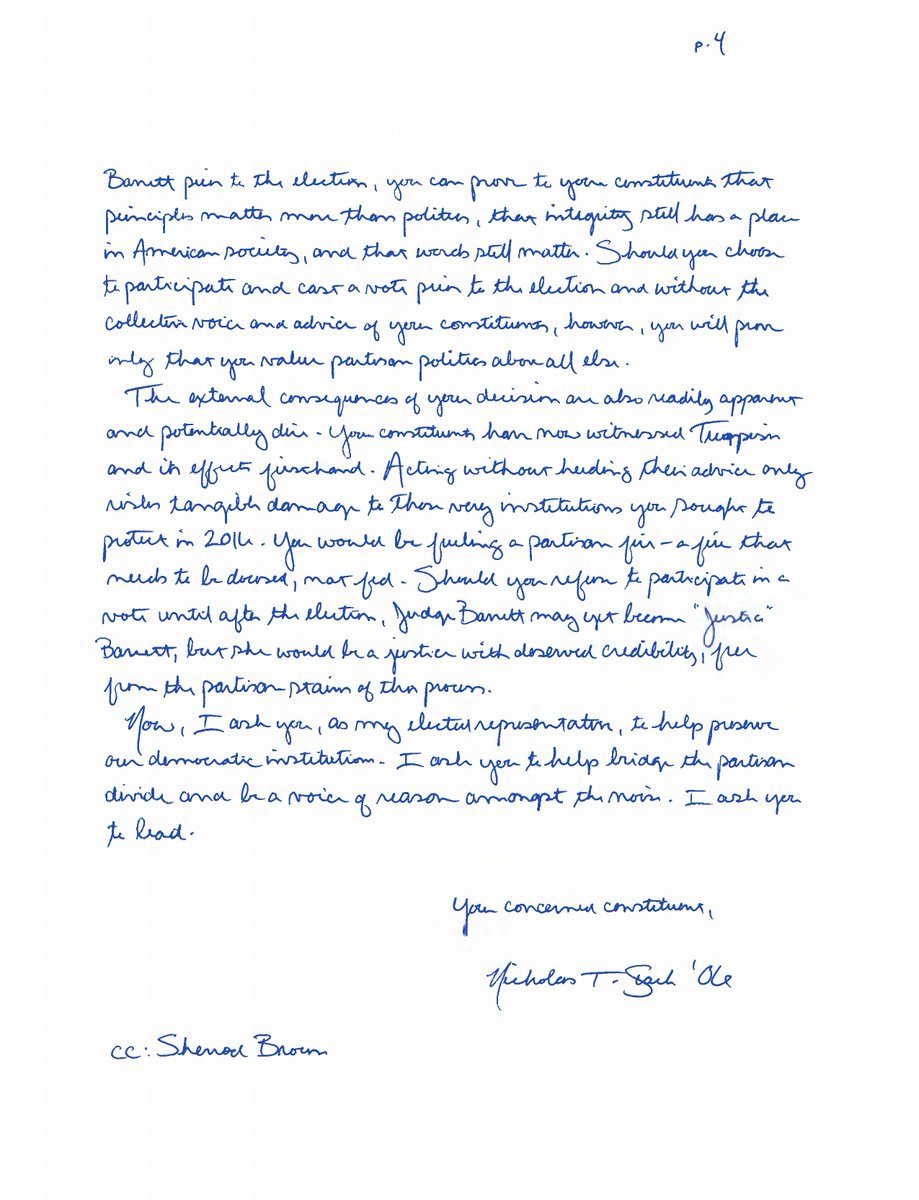 p.4
Barrett prior to the election, you can prove to your constituents that
principles matter more than politics, that integrity still has a place
in American society, and that words still matter. Should you choose
to participate and cast a vote prior to the election and without the
collective voice and advice of your constituents, however, you will prove
only that you value partisan politics above all else.
The external consequences of your decision are also readily apparent
and potentially dire. Your constituents have now witnessed Trumpism
and its effects firsthand. Acting without heeding their advice only
risks tangible damage to those very institutions you sought to
protect in 2016. You would be fueling a partisan fire – a fire that
needs to be doused, not fed. Should you refuse to participate in a
vote until after the election, Judge Barrett may yet become "Justice"
Barrett, but she would be a justice with deserved credibility, free
from the partisan stains of this process.
Now, I ask you, as my elected representative, to help preserve
our democratic institution. I ask you to help bridge the partisan
divide and be a voice of reason amongst the noise. I ask you
to lead.
Your concerned constituent,
Nicholas T. '06
cc: Sherrod Brown